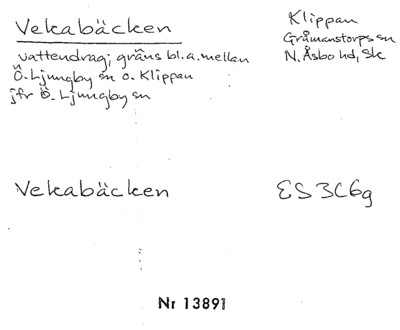 Vekabäcken
Klippan
Gråmanstorps sn
N. Åsbo hd, Sk
vattendrag; gräns bl.a. mellan
Ö. Ljungby sn o. Klippan
jfr Ö. Ljungby sn
Vekabäcken
ES3C6g
Nr 13891